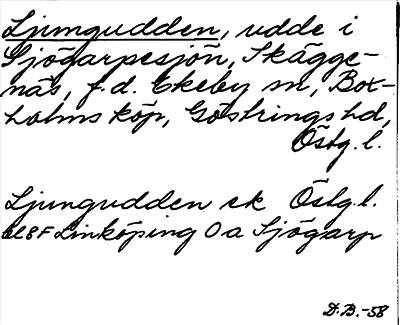 Ljungudden, udde i
Sjögarpesjön, Skägge-
näs, f.d. Ekeby sn, Box-
holms köp, Göstrings hd,
Östg.l.
Ljungudden ek Östg.l.
bl 8F Linköping 0a Sjögarp
D.B.-58